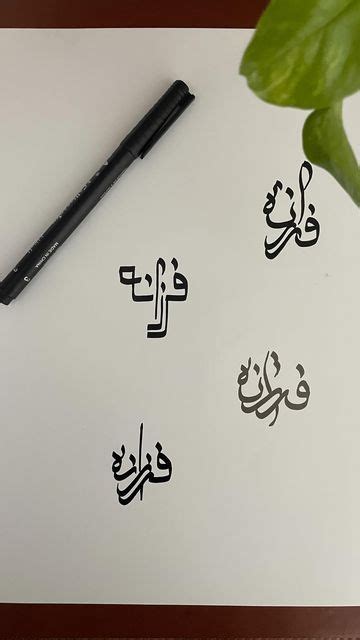 فرزانه
فرزانه
فرزانه
فرزانه